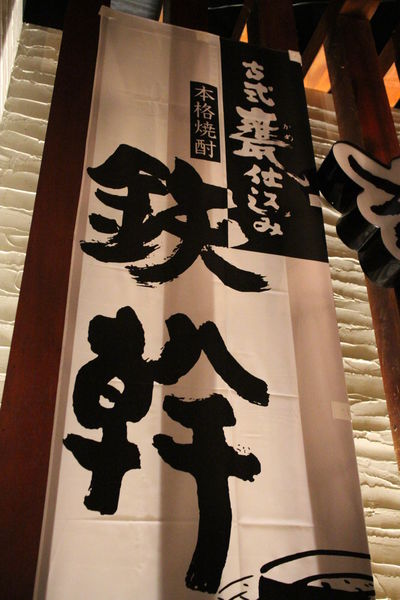 古式甕仕込み
かめ
本格焼酎
鉄幹